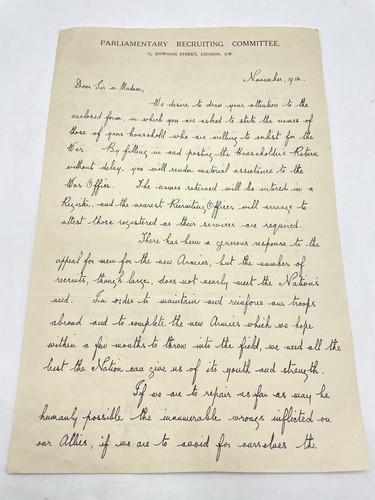 PARLIAMENTARY RECRUITING COMMITTEE.
12, DOWNING STREET, LONDON, S.W.
November, 1914.
Dear Sir or Madam,
We desire to draw your attention to the
enclosed form, in which you are asked to state the names of
those of your household who are willing to enlist for the
War. By filling in and posting the Householder's Return
without delay, you will render material assistance to the
War Office. The names returned will be entered in a
Register, and the nearest Recruiting Officer will arrange to
attest those registered as their services are required.
There has been a generous response to the
appeal for men for the new Armies, but the number of
recruits, though large, does not nearly meet the Nation's
need. In order to maintain and reinforce our troops
abroad and to complete the new Armies which we hope
within a few months to throw into the field, we need all the
best the Nation can give us of its youth and strength.
If we are to repair as far as may be
humanly possible the innumerable wrongs inflicted on
our Allies, if we are to avoid for ourselves the